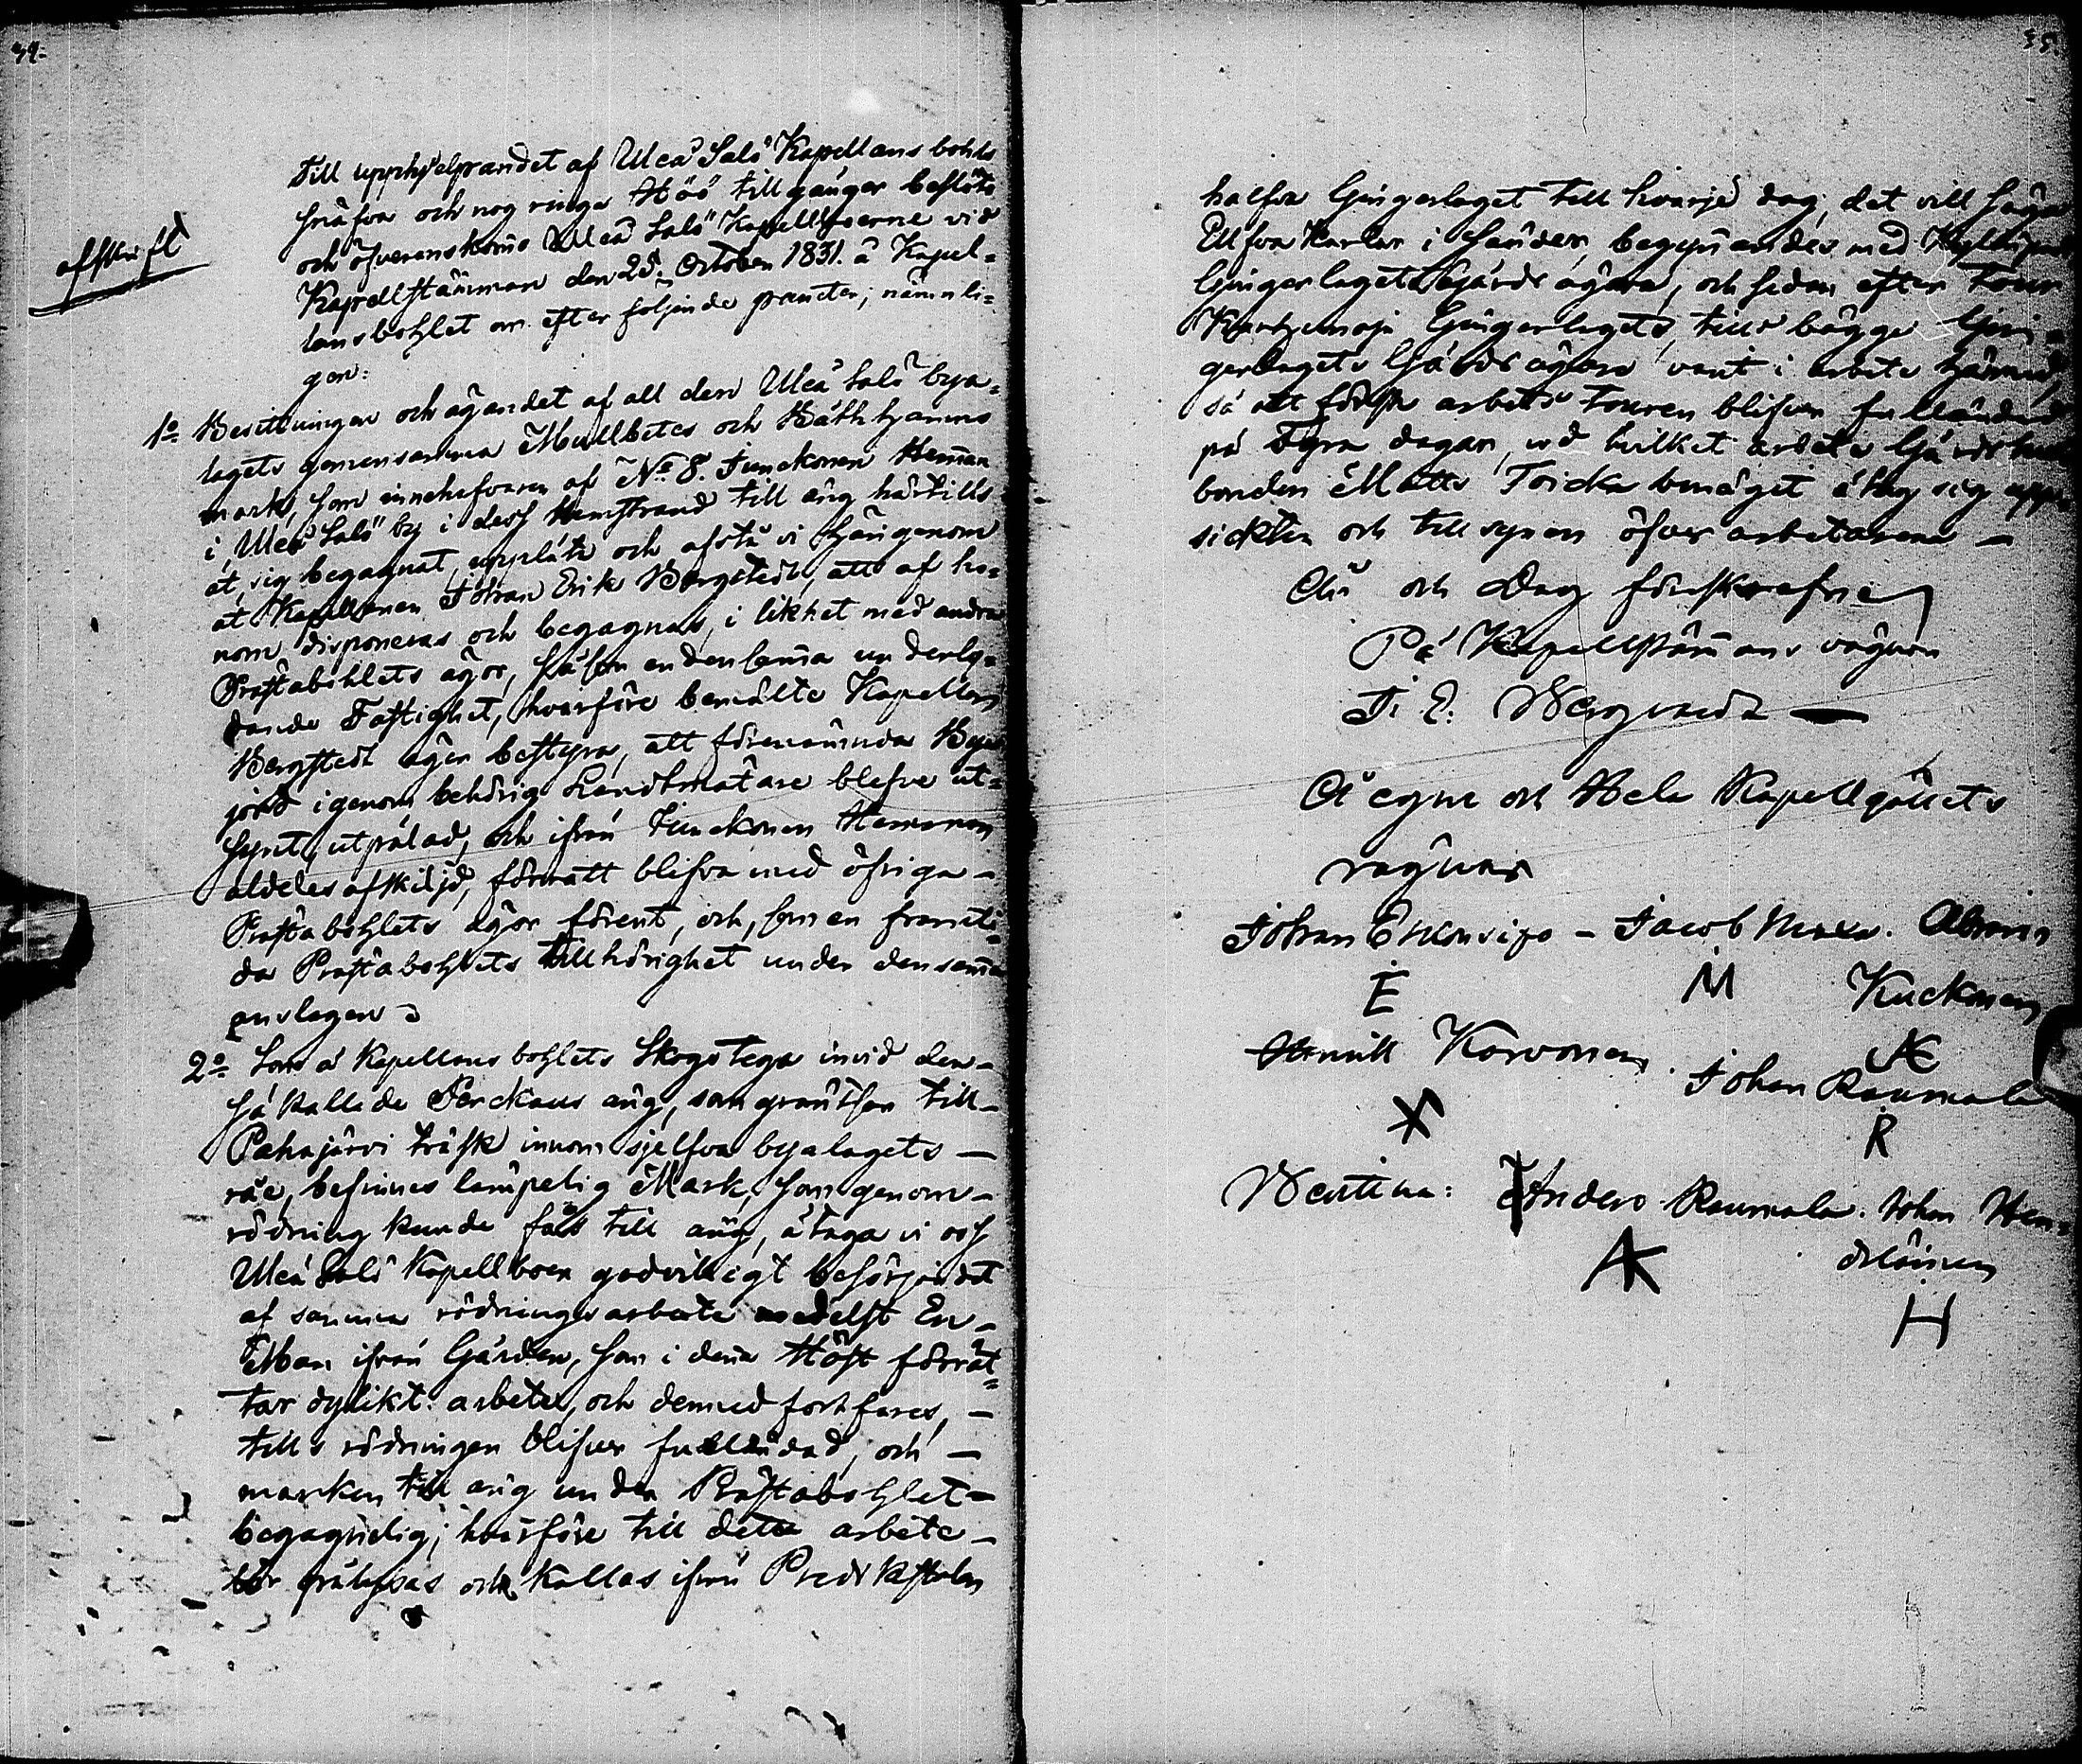 34.
afskrift
Till upphjelpandet af Uleå Salo Kapellans bohls
små och nog ringa Höö tillgångar beslöts
och öfverenskoms Uleå Salo Kapellboerne vid
Kapellstämman den 23 October 1831. å Kapel=
lansbohlet om efter följande puncter; nämnli=
gen:
1o Besittningen och ägandet af all den Uleå Salo bya=
lagets gemensamma Mullbetes och
mark, som innehafvaren af No 8. Junckonen Heman
i Uleå Salo by i dess Hemstrand till äng härtills
åt sig begagnat, upplåte och afstå vi härigenom
åt Kapellanen Johan Erik Bergstedt, att af ho=
nom disponeras och begagnas, i likhet med andra
Prästabohlets ägor, såsom en densamma underly=
dande Fastighet, hvarföre bemälte Kapellan
Bergstedt äger bestyra, att förenämnda Bya
jord igenom behörig Landtmätare blifve ut=
synt, utpålad, och ifrån Junckonen Hemman
aldeles afskiljd, för att blifva med öfriga –
Prästabohlets ägor förent, och, som en framti=
da Prästabohlets tillhörighet under densamma
anslagen
2o Som å Kapellans bohlets Skogstega invid den –
så kallade äng, som gräntsar till –
Pahajärvi träsk innom sjelfva byalagets –
råe, befinnes lämpelig Mark, som genom –
rödning kunde fås till äng, åtaga vi oss
Uleå Salo Kapellboer godvilligt besörjandet
af samma rödnings arbete medelst En –
Man ifrån Gården, som i denna Höst förrät=
tar dylikt arbete, och dermed fortfares, –
tills rödningen blifver fulländad, och –
marken till äng under Prästabohlet –
begagnelig; hvarföre till detta arbete –
bör pålysas och kallas ifrån Predikstolen
35.
halfva Gingerlaget till hvarje dag, det vill säga
Elfva Karlar i sänder, begynnandes med
Gingerlagets Gårds ägare, och sedan efter Tour
Gingerlagets, tills bägge Gin=
gerlagets Gårds ägare varit i arbete härmed,
så att första arbets Touren blifver fulländad
på Fyra dagar, vid hvilket arbete
bonden Matts Toicka benäget åtog sig upp=
sickten och tillsynen öfver arbetarena –
År och Dag förskrefne
På Kapellstämans vägnar
J. E. Bergstedt –
Å egne och Hela Kapellgällets
vägnar
Johan – Jacob Abram
E M Kuckonen
AK
Henrik Korvonen. Johan Raumala
X R
Bevittna: Anders Raumala. Johan Hen=
AK
H